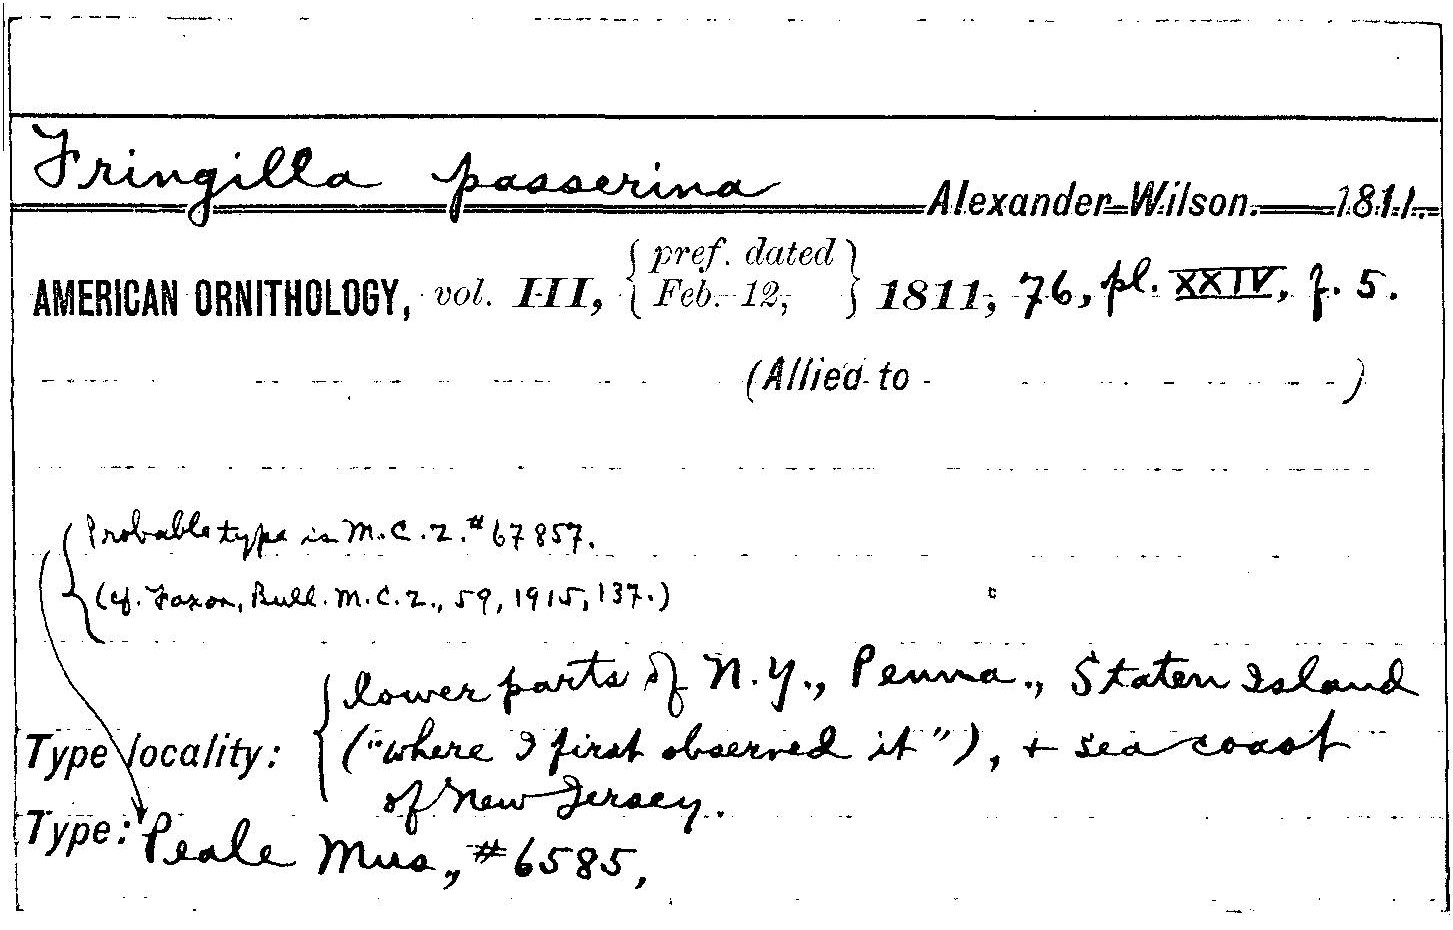 Fringilla passerina Alexander Wilson. 1811.
AMERICAN ORNITHOLOGY, vol. III, { pref. dated Feb. 12, } 1811, 76, pl. XXIV, f. 5.
(Allied to )
{ Probable type is M.C.Z. #67857.
(cf. Faxon, Bull. M.C.Z., 59, 1915, 137.)
Type locality: { lower parts of N.Y., Penna., Staten Island
("where I first observed it"), + sea coast
of New Jersey.
Type: Peale Mus., #6585,